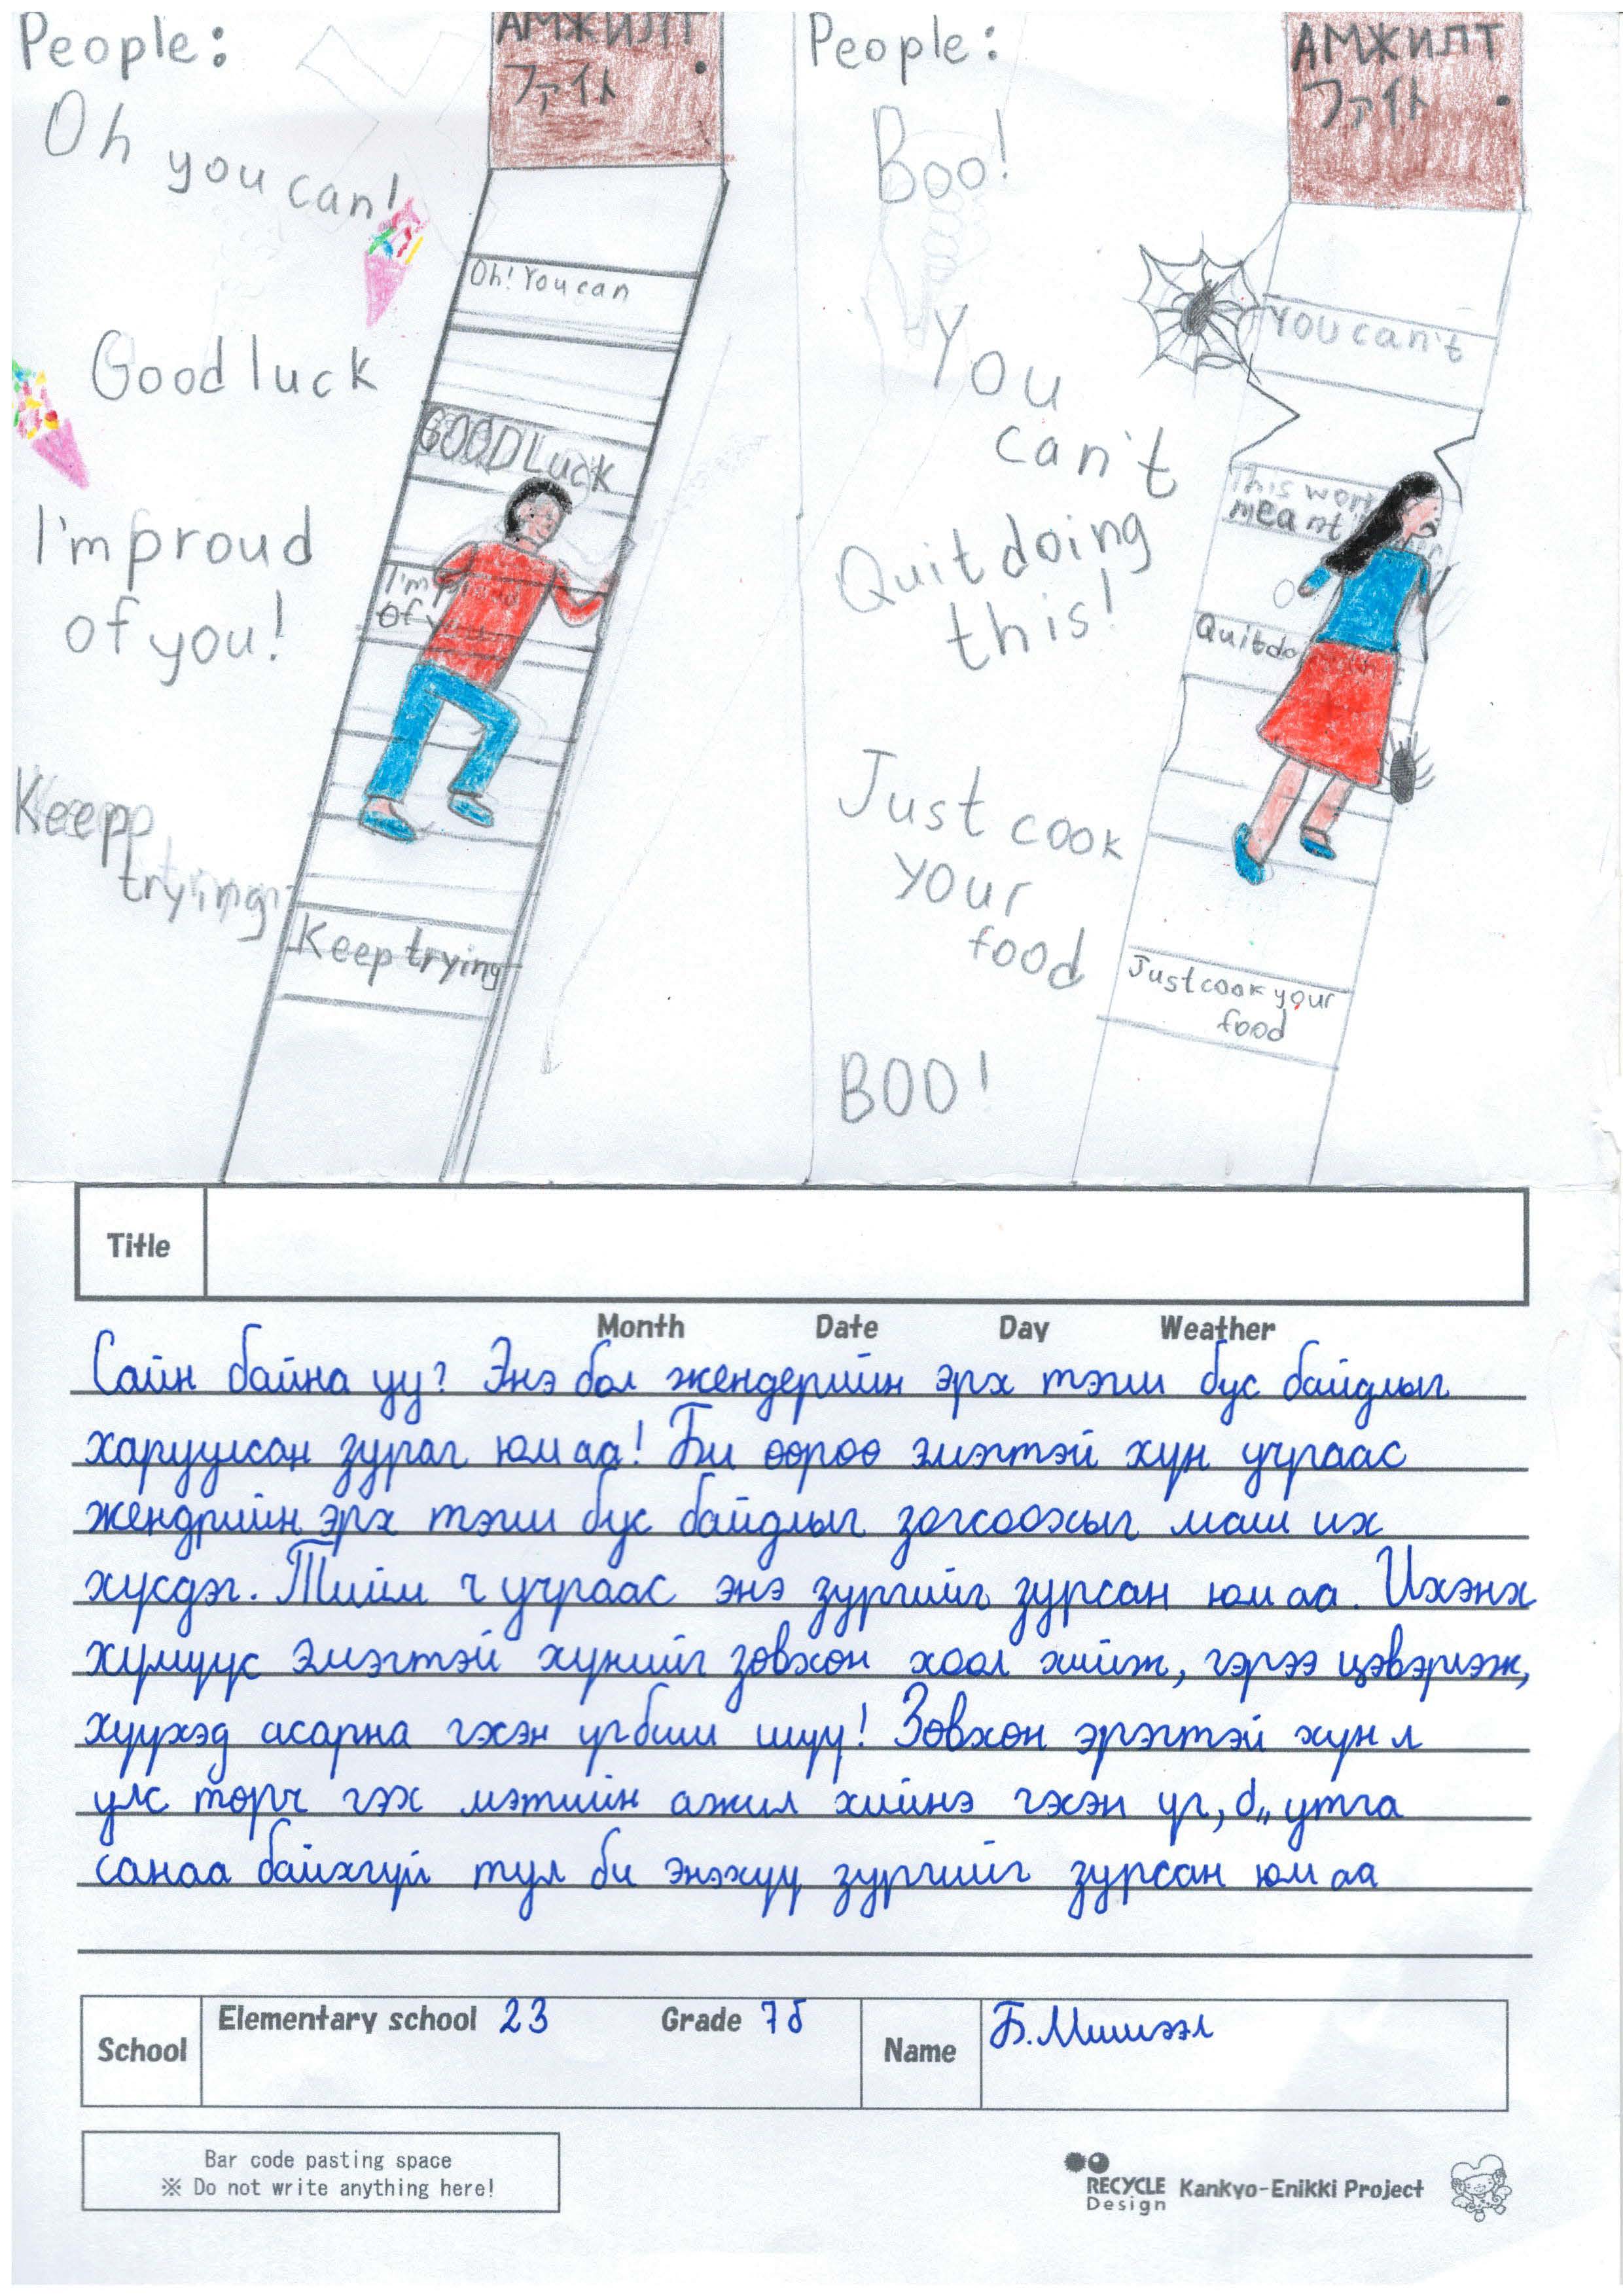 People:
Oh you can!
Good luck
I'm proud
of you!
Keep
trying
АМЖИЛТ
ファイト
Oh! You can
GOOD Luck
I'm
of you
Keep trying
People:
Boo!
You
can't
Quit doing
this!
Just cook
your
food
BOO!
АМЖИЛТ
ファイト
You can't
This wor
meant
Quit do
Just cook your
food
Title
Month Date Day Weather
Сайн байна уу? Энэ бол жендерийн эрх тэгш бус байдлыг
харуулсан зураг юм аа! Би өөрөө эмэгтэй хүн учраас
жендрийн эрх тэгш бус байдлыг зогсоохыг маш их
хүсдэг. Тийм ч учраас энэ зургийг зурсан юм аа. Ихэнх
хүмүүс эмэгтэй хүнийг зөвхөн хоол хийж, гэрээ цэвэрлэж,
хүүхэд асарна гэсэн үг биш шүү! Зөвхөн эрэгтэй хүн л
улс төрч гэх мэтийн ажил хийнэ гэсэн үг, утга
санаа байхгүй тул би энэхүү зургийг зурсан юм аа
School Elementary school 23 Grade 7б Name Б.Мишээл
Bar code pasting space
※ Do not write anything here!
RECYCLE
Design
Kankyo-Enikki Project